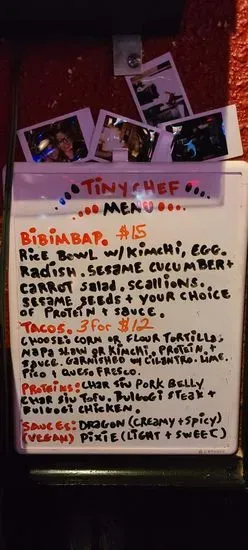 TINY CHEF
MENU
BIBIMBAP. $15
RICE BOWL W/ KIMCHI, EGG.
RADISH. SESAME CUCUMBER +
CARROT SALAD. SCALLIONS.
SESAME SEEDS + YOUR CHOICE
OF PROTEIN + SAUCE.
TACOS. 3 FOR $12
CHOOSE: CORN OR FLOUR TORTILLA:
NAPA SLAW OR KIMCHI. PROTEIN. +
SAUCE. GARNISHED W/ CILANTRO. LIME.
PICO + QUES. FRESCO.
PROTEINS: CHAR SIU PORK BELLY
CHAR SIU TOFU. BULGOGI STEAK +
BULGOGI CHICKEN.
SAUCES: DRAGON (CREAMY + SPICY)
(VEGAN) PIXIE (LIGHT + SWEET)